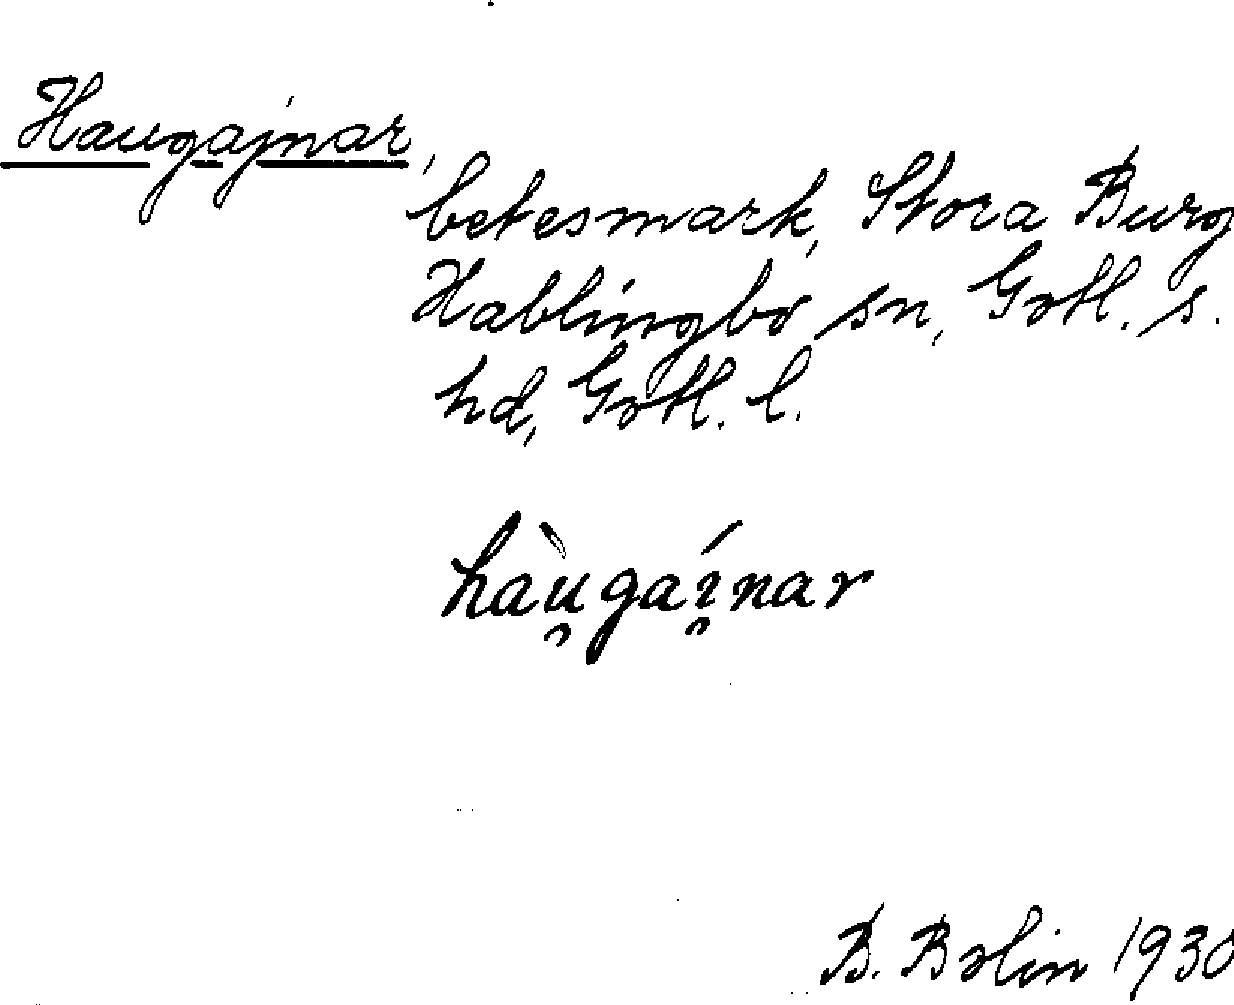 Haugajnar,
betesmark, Stora Burg
Hablingbo sn, Gotl. s.
hd, Gotl. l.
hàu̯gaı̯́nar
B. Bolin 1930